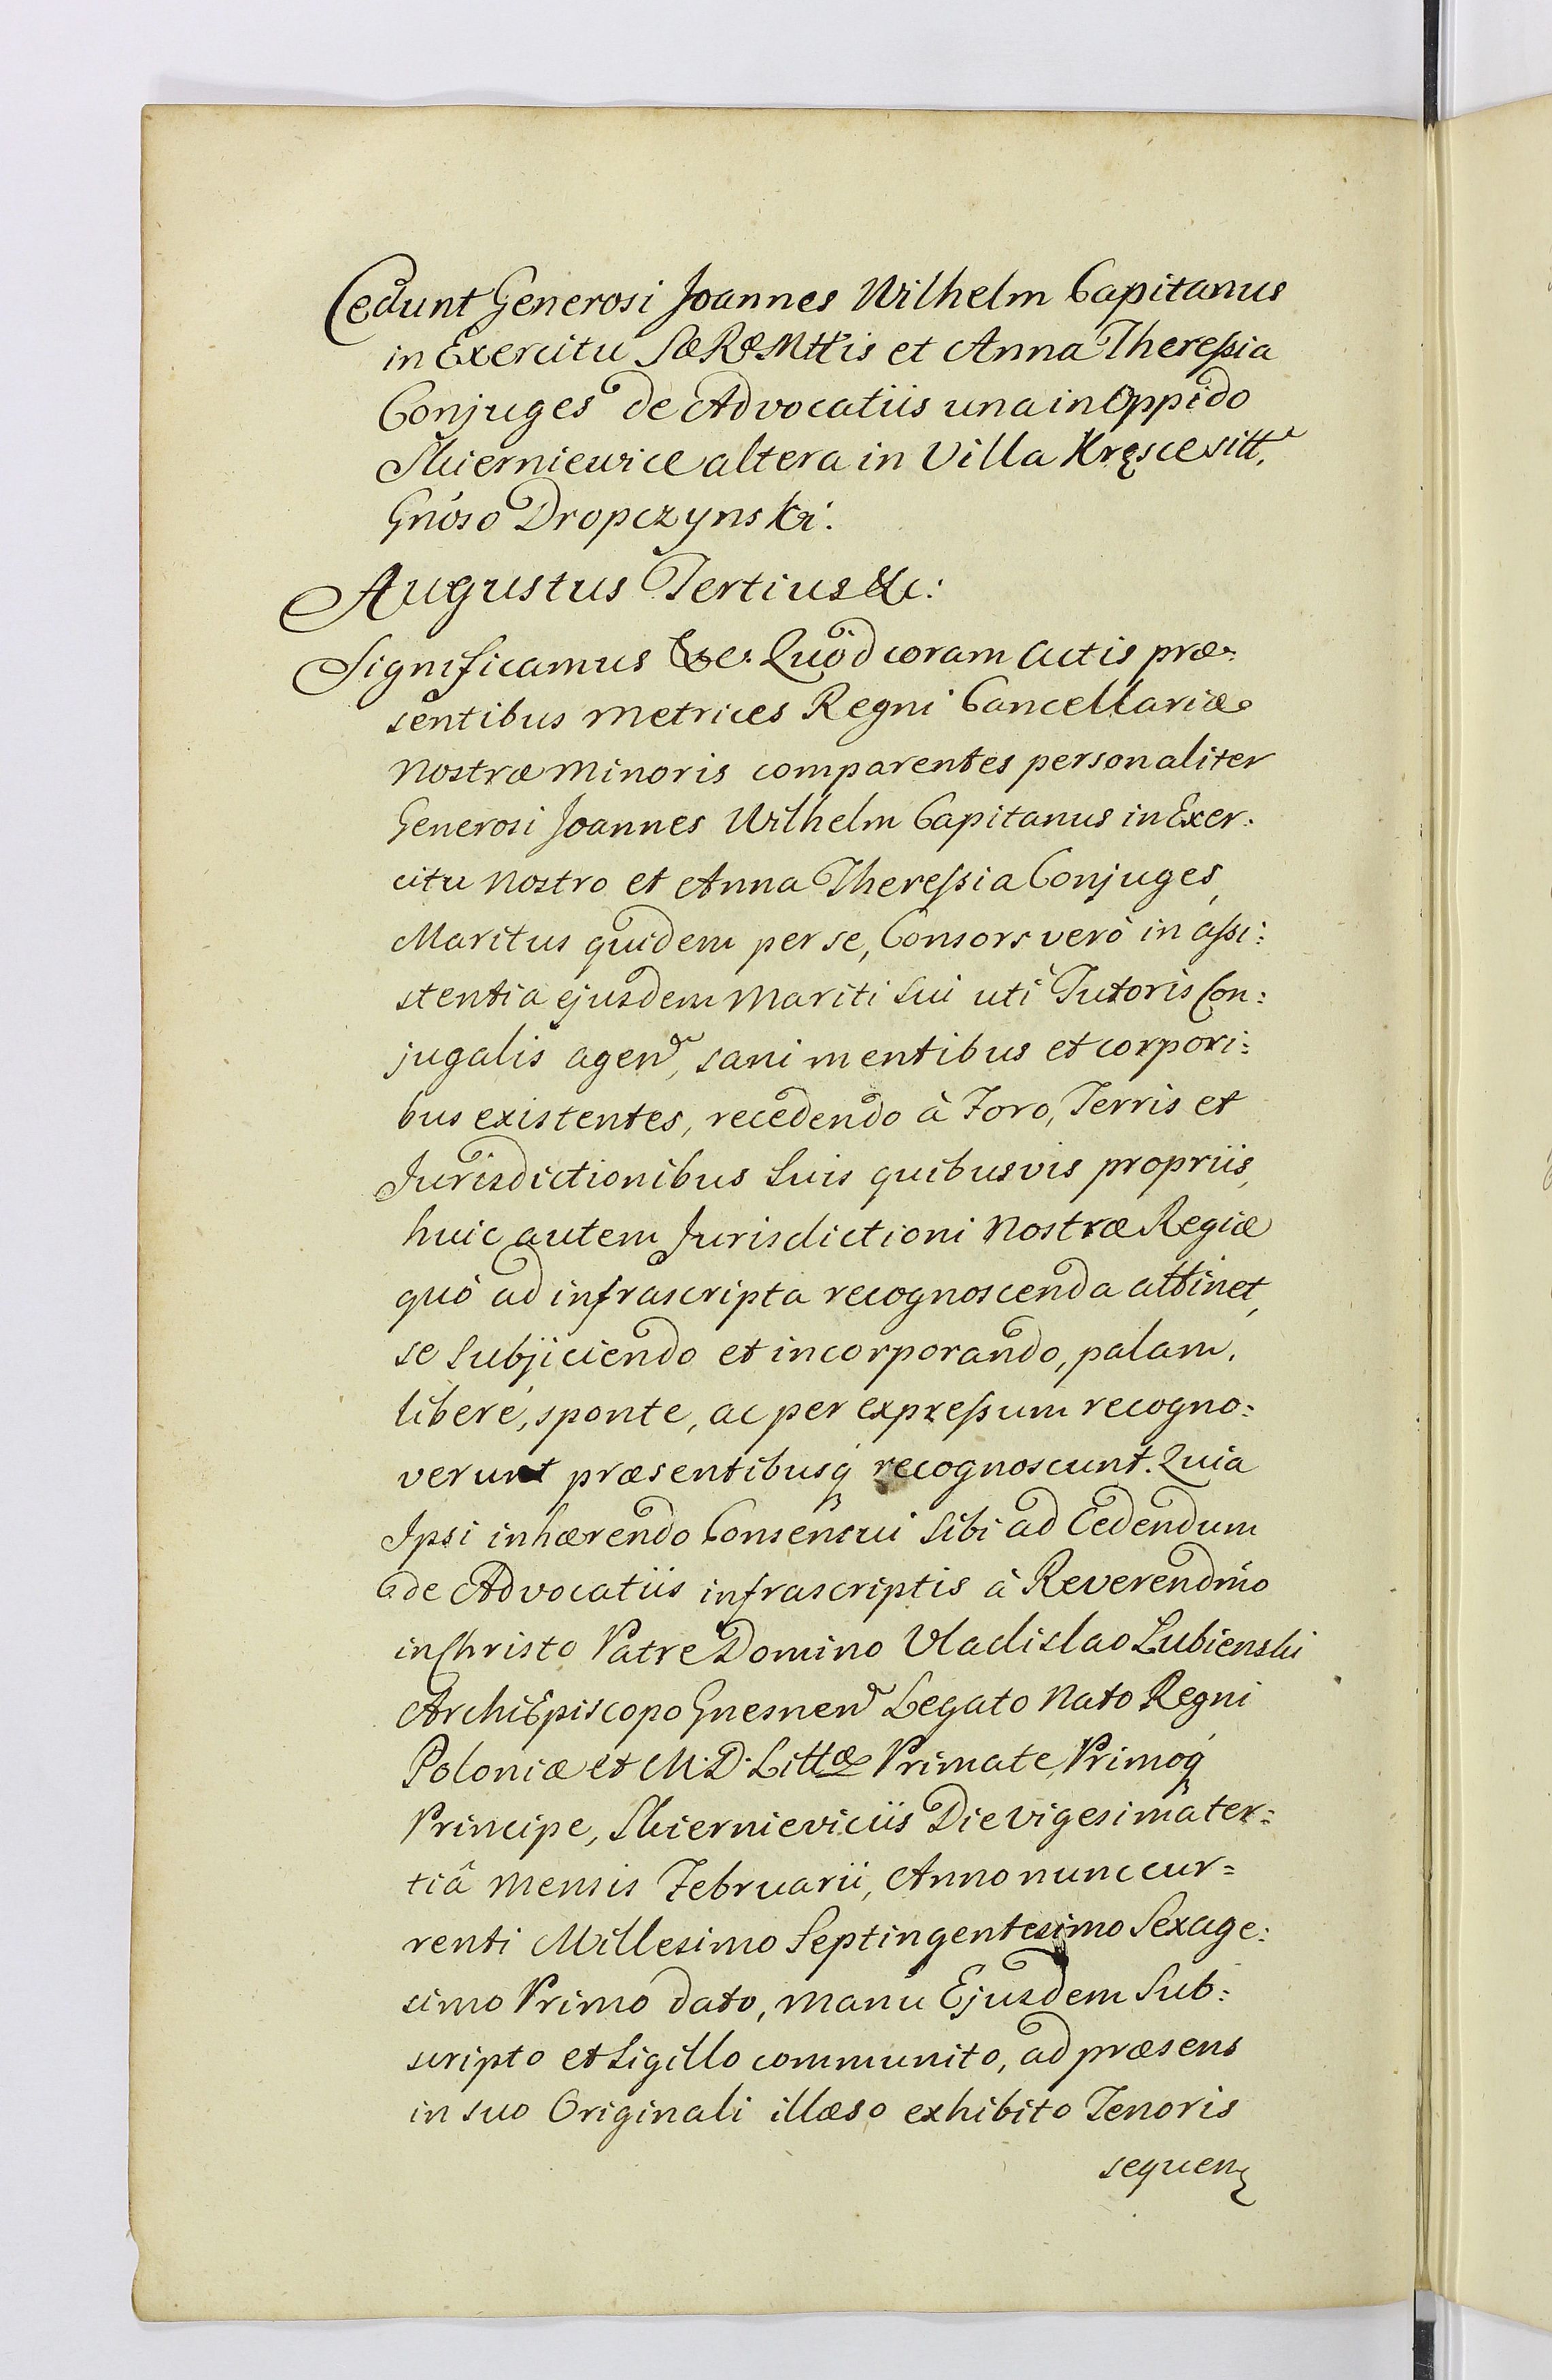 Cedunt Generosi Joannes Wilhelm Capitanus
in Exercitu SæRæMttis et Anna Theressia
Conjuges de Advocatiis una in Oppido
Skierniewice altera in Villa Kręsce sitt.
Gnoso Dropczynski.
Augustus Tertius &c:
Significamus &c. Quod coram Actis præ:
sentibus Metrices Regni Cancellariæ
Nostræ Minoris comparentes personaliter
Generosi Joannes Wilhelm Capitanus in Exer:
citu Nostro et Anna Theressia Conjuges,
Maritus quidem per se, Consors verò in assi:
stentia ejusdem Mariti Sui uti Tutoris Con:
jugalis agen, sani mentibus et corpori:
bus existentes, recedendo à Foro, Terris et
Jurisdictionibus Suis quibusvis propriis,
huic autem Jurisdictioni Nostræ Regiæ
quò ad infrascripta recognoscenda attinet,
se Subjiciendo et incorporando, palam,
liberé, sponte, ac per expressum recogno:
verunt præsentibusq recognoscunt. Quia
Ipsi inhærendo Consensui Sibi ad Cedendum
de Advocatiis infrascriptis à Reverendmo
in Christo Patre Domino Vladislao Lubienski
ArchiEpiscopo Gnesnen Legato Nato Regni
Poloniæ et M.D. Littæ Primate, Primoq
Principe, Skierniewiciis Die vigesima ter:
tiâ Mensis Februarii, Anno nunc cur=
renti Millesimo Septingentesimo Sexage:
simo Primo dato, Manu Ejusdem Sub:
scripto et Sigillo communito, ad præsens
in suo Originali illæso exhibito Tenoris
sequen